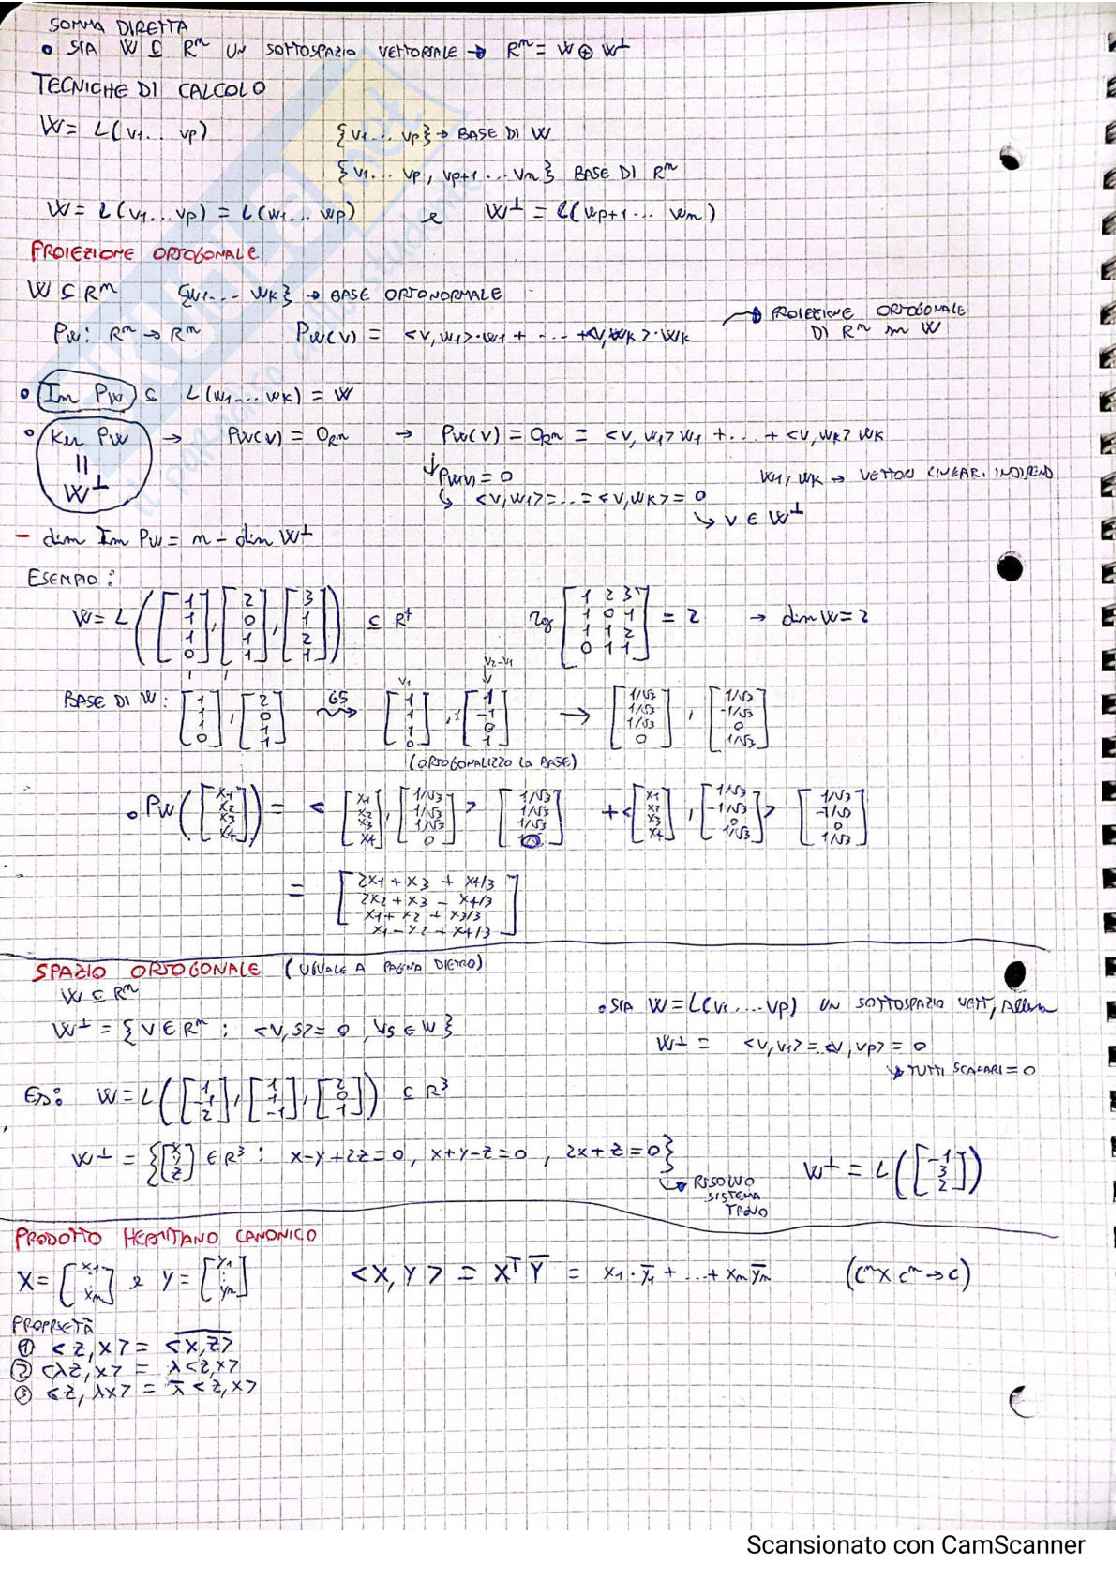 SOMMA DIRETTA
• SIA W ⊆ Rⁿ UN SOTTOSPAZIO VETTORIALE → Rⁿ = W ⊕ W⊥
TECNICHE DI CALCOLO
W = L(v1... vp) {v1... vp} → BASE DI W
{v1... vp, vp+1... vn} BASE DI Rⁿ
W = L(v1...vp) = L(w1... wp) e W⊥ = L(wp+1... wn)
PROIEZIONE ORTOGONALE
W ⊆ Rⁿ {w1... wk} → BASE ORTONORMALE
Pw: Rⁿ → Rⁿ Pw(v) = <v,w1>·w1 + ... + <v,wk>·wk → PROIEZIONE ORTOGONALE DI Rⁿ in W
• Im Pw ⊆ L(w1...wk) = W
• Ker Pw → Pw(v) = 0Rⁿ → Pw(v) = 0Rⁿ = <v,w1>w1 + ... + <v,wk>wk
= W⊥
↓ Pw(v) = 0 w1, wk → VETTORI LINEAR. INDIPEND
↳ <v,w1> = ... = <v,wk> = 0
↳ v ∈ W⊥
- dim Im Pw = n - dim W⊥
ESEMPIO:
W = L([1 1 1 0], [2 0 1 1], [3 1 2 1]) ⊆ R⁴ rg [1 2 3 / 1 0 1 / 1 1 2 / 0 1 1] = 2 → dim W = 2
v1 v2-v1
BASE DI W: [1 1 1 0], [2 0 1 1] GS [1 1 1 0], [1 -1 0 1] → [1/√2 1/√3 1/√3 0], [1/√3 -1/√3 0 1/√2]
(ORTOGONALIZZO LA BASE)
• Pw([x1 x2 x3 x4]) = <[x1 x2 x3 x4], [1/√3 1/√3 1/√3 0]> [1/√3 1/√3 1/√3 0] + <[x1 x2 x3 x4], [1/√3 -1/√3 0 1/√3]> [1/√3 -1/√3 0 1/√3]
= [2x1 + x3 + x4/3
2x2 + x3 - x4/3
x1 + x2 + x3/3
x1 - x2 - x4/3]
SPAZIO ORTOGONALE (UGUALE A PAGINA DIETRO)
W ⊆ Rⁿ
W⊥ = {v ∈ Rⁿ : <v,s> = 0, ∀s ∈ W}
• SIA W = L(v1...vp) UN SOTTOSPAZIO VETT, Allora
W⊥ = <v,v1> = <v,vp> = 0
↳ TUTTI SCALARI = 0
ES: W = L([1 -1 2], [1 1 -1], [2 0 1]) ⊆ R³
W⊥ = {[x y z] ∈ R³ : x-y+2z=0, x+y-z=0, 2x+z=0} W⊥ = L([-1 3 2])
↳ RISOLVO
SISTEMA
TROVO
PRODOTTO HERMITIANO CANONICO
X = [x1 : xn] e Y = [y1 : yn] <X,Y> = Xᵀ Y̅ = x1·y̅1 + ... + xn y̅n (Cⁿ x Cⁿ → C)
PROPRIETÀ
① <z,x> = <x,z>‾
② <λz,x> = λ<z,x>
③ <z,λx> = λ̅<z,x>
Scansionato con CamScanner